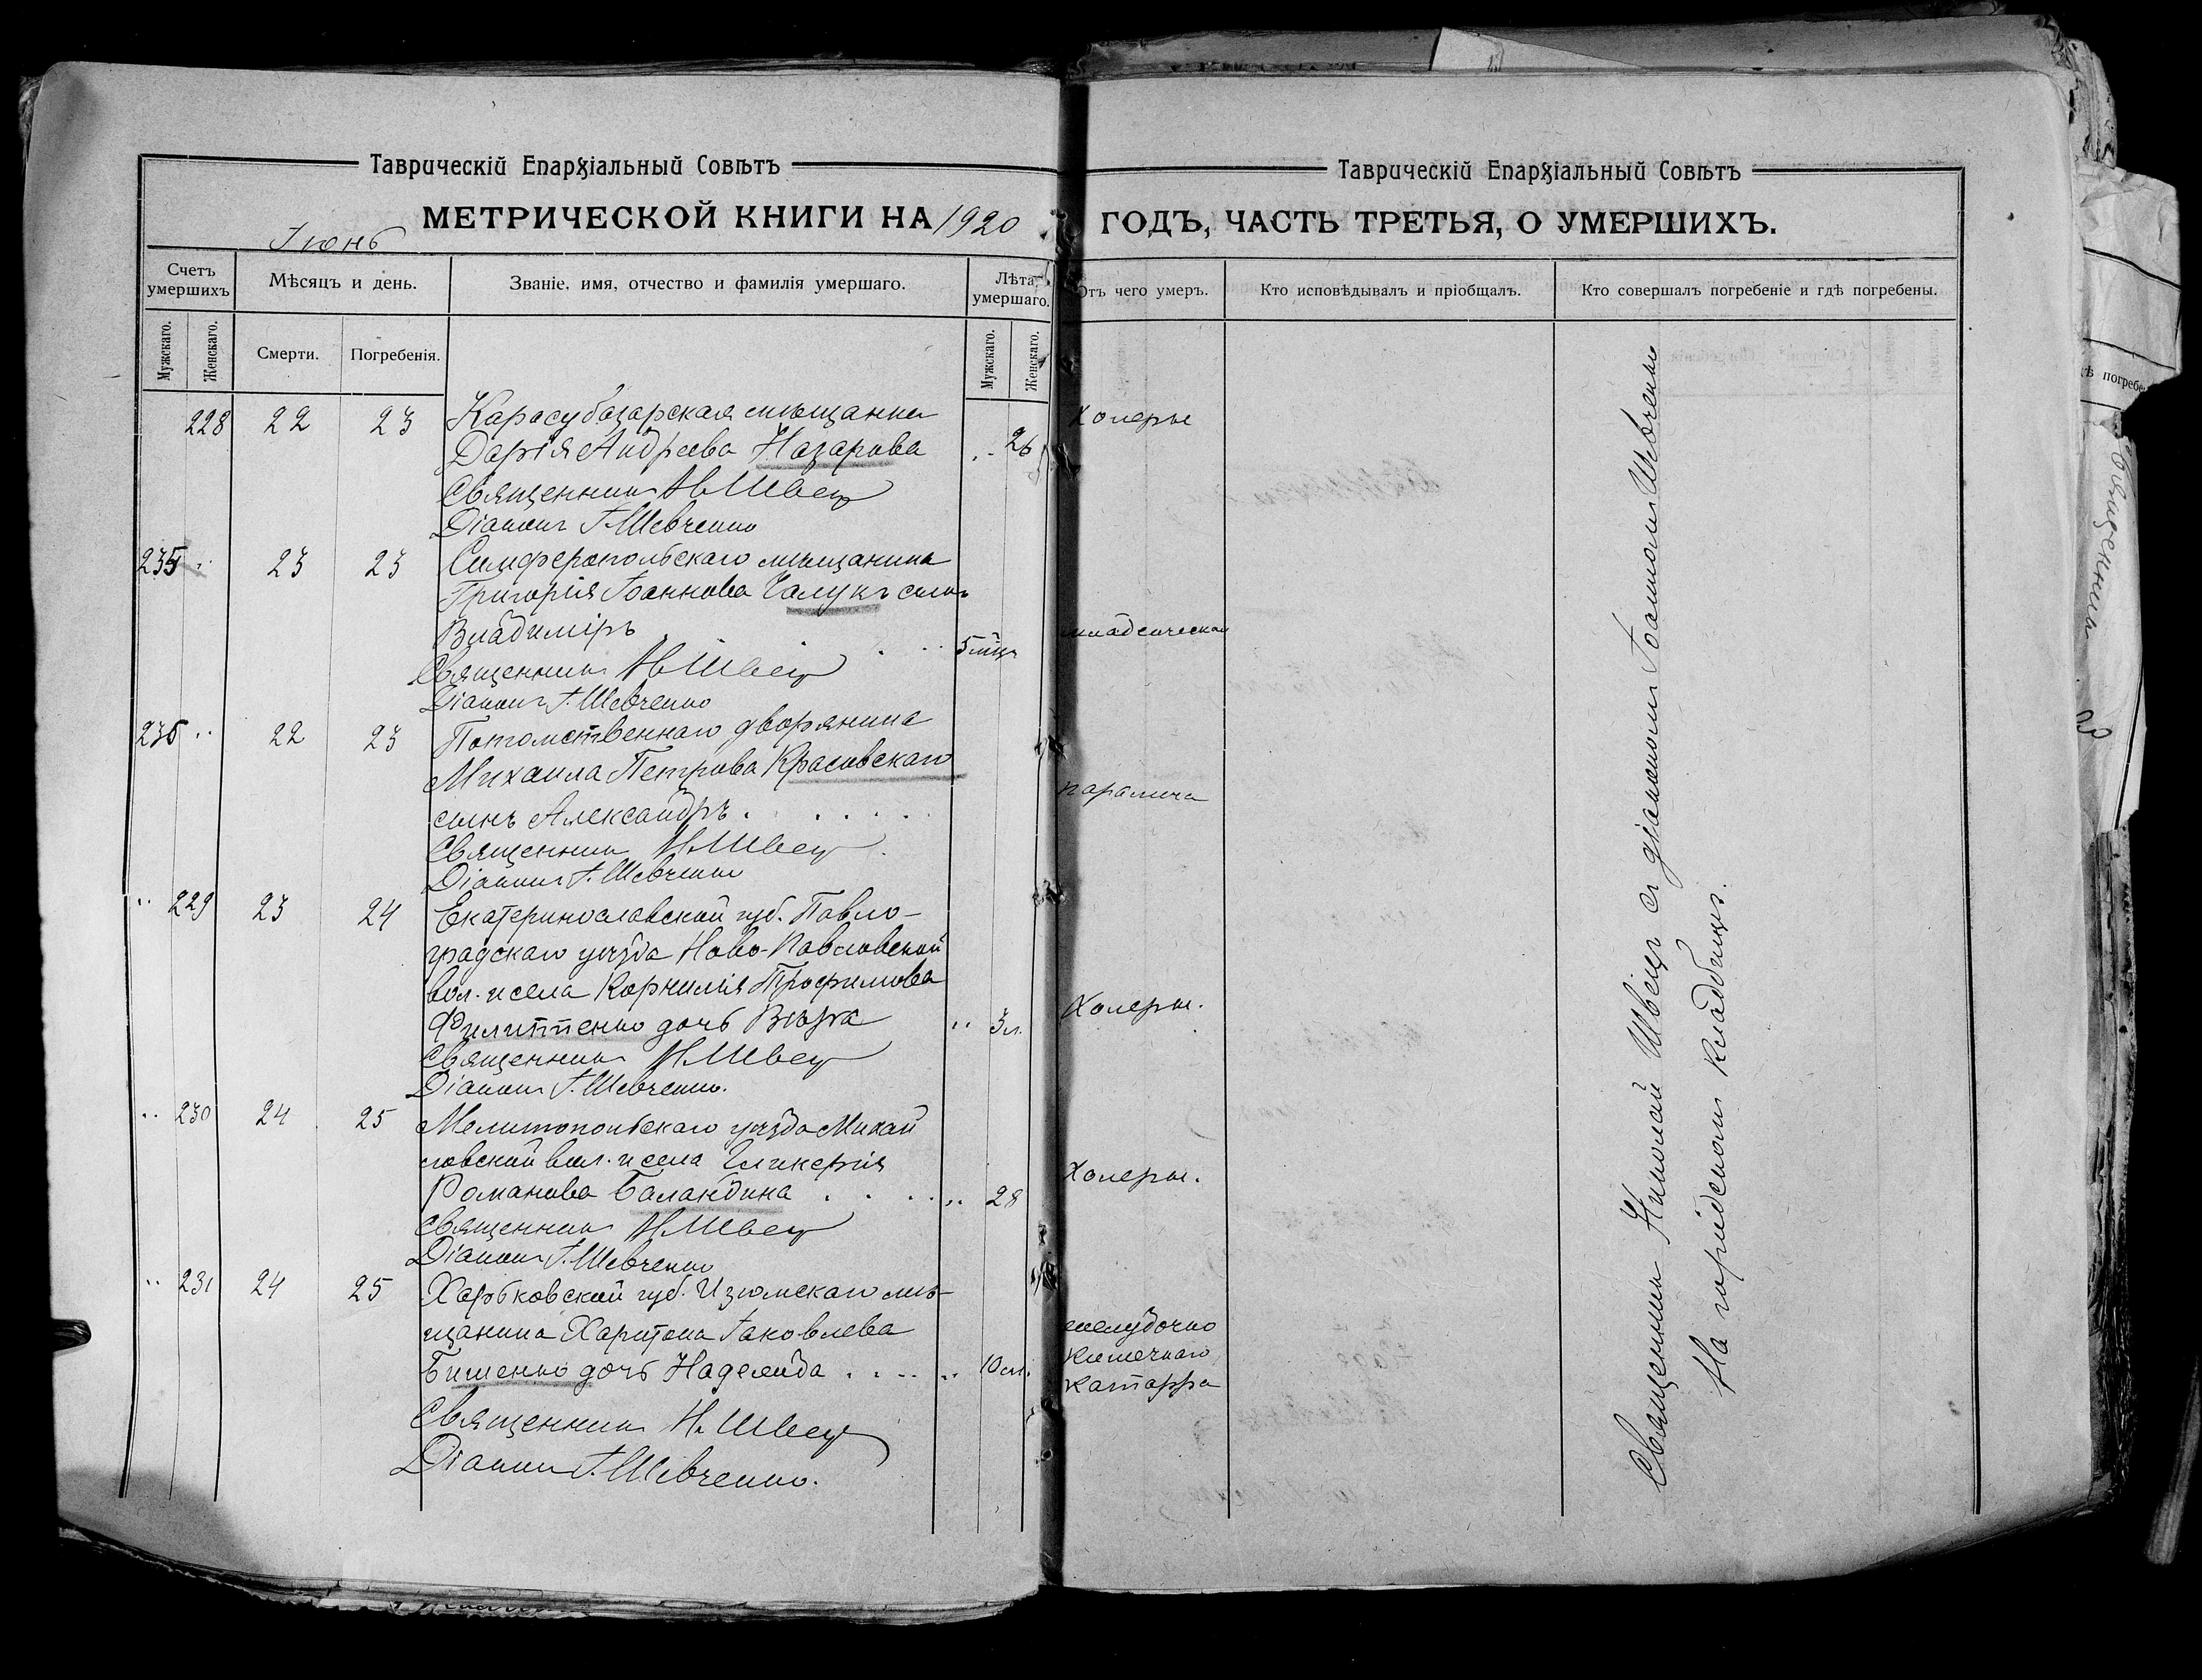 Таврическій Епархіальный Совѣтъ
МЕТРИЧЕСКОЙ КНИГИ НА 1920
Іюнь
Счетъ умершихъ
Мѣсяцъ и день.
Званіе, имя, отчество и фамилія умершаго.
Лѣта умершаго.
Мужскаго.
Женскаго.
Смерти.
Погребенія.
Мужскаго.
Женскаго.
228 22 23 Карасубазарская мѣщанка
Дарія Андреева Назарова 26
Священникъ Н Швец
Діаконъ І. Шевченко
235 23 23 Симферопольскаго мѣщанина
Григорія Іоаннова Чалукъ сынъ
Владиміръ 5 мѣц
Священникъ Н Швец
Діаконъ І. Шевченко
236 22 23 Потомственнаго дворянина
Михаила Петрова Красовскаго
сынъ Александръ
Священникъ Н Швец
Діаконъ І. Шевченко
229 23 24 Екатеринославской губ. Павло-
градскаго уѣзда Ново-Павловской
вол. и села Корнилія Трофимова
Филиппенко дочь Вѣра 3 л.
Священникъ Н Швец
Діаконъ І. Шевченко.
230 24 25 Мелитопольскаго уѣзда Михай
ловской вол. и села Гликерія
Романова Баландина 28
Священникъ Н Швец
Діаконъ І. Шевченко
231 24 25 Харьковской губ. Изюмскаго мѣ-
щанина Харитона Іаковлева
Бишенко дочь Надежда 10 м.
Священникъ Н Швец
Діаконъ І. Шевченко.
Таврическій Епархіальный Совѣтъ
ГОДЪ, ЧАСТЬ ТРЕТЬЯ, О УМЕРШИХЪ.
Отъ чего умеръ.
Кто исповѣдывалъ и пріобщалъ.
Кто совершалъ погребеніе и гдѣ погребены.
Холеры
младенческой
паралича
Холеры.
Холеры.
желудочно
кишечнаго
катарра
Священникъ Николай Швецъ съ діакономъ Іоанномъ Шевченко
На городскомъ кладбищѣ.
Священник